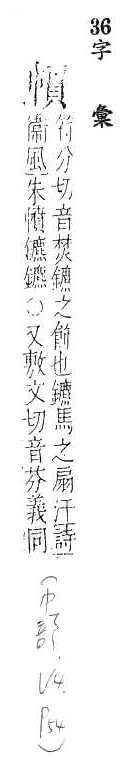 36字彙
幩
符分切音焚鑣之飾也鑣馬之扇汗詩
衞風朱幩鑣鑣○又敷文切音芬義同
(巾部.V4.P54)